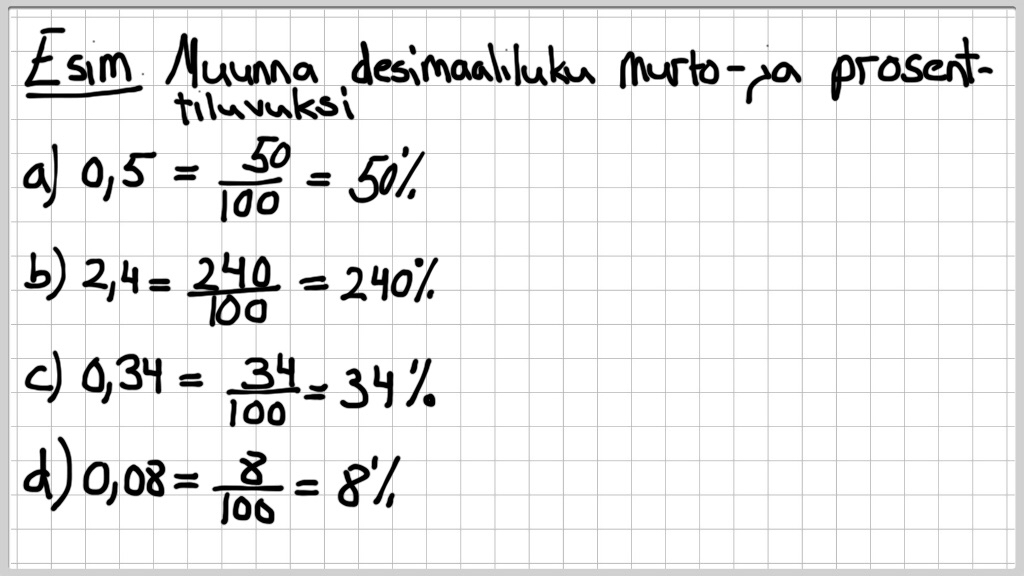 Esim. Muunna desimaaliluku murto- ja prosent-
tiluvuksi
a) 0,5 = 50/100 = 50%
b) 2,4 = 240/100 = 240%
c) 0,34 = 34/100 = 34%
d) 0,08 = 8/100 = 8%